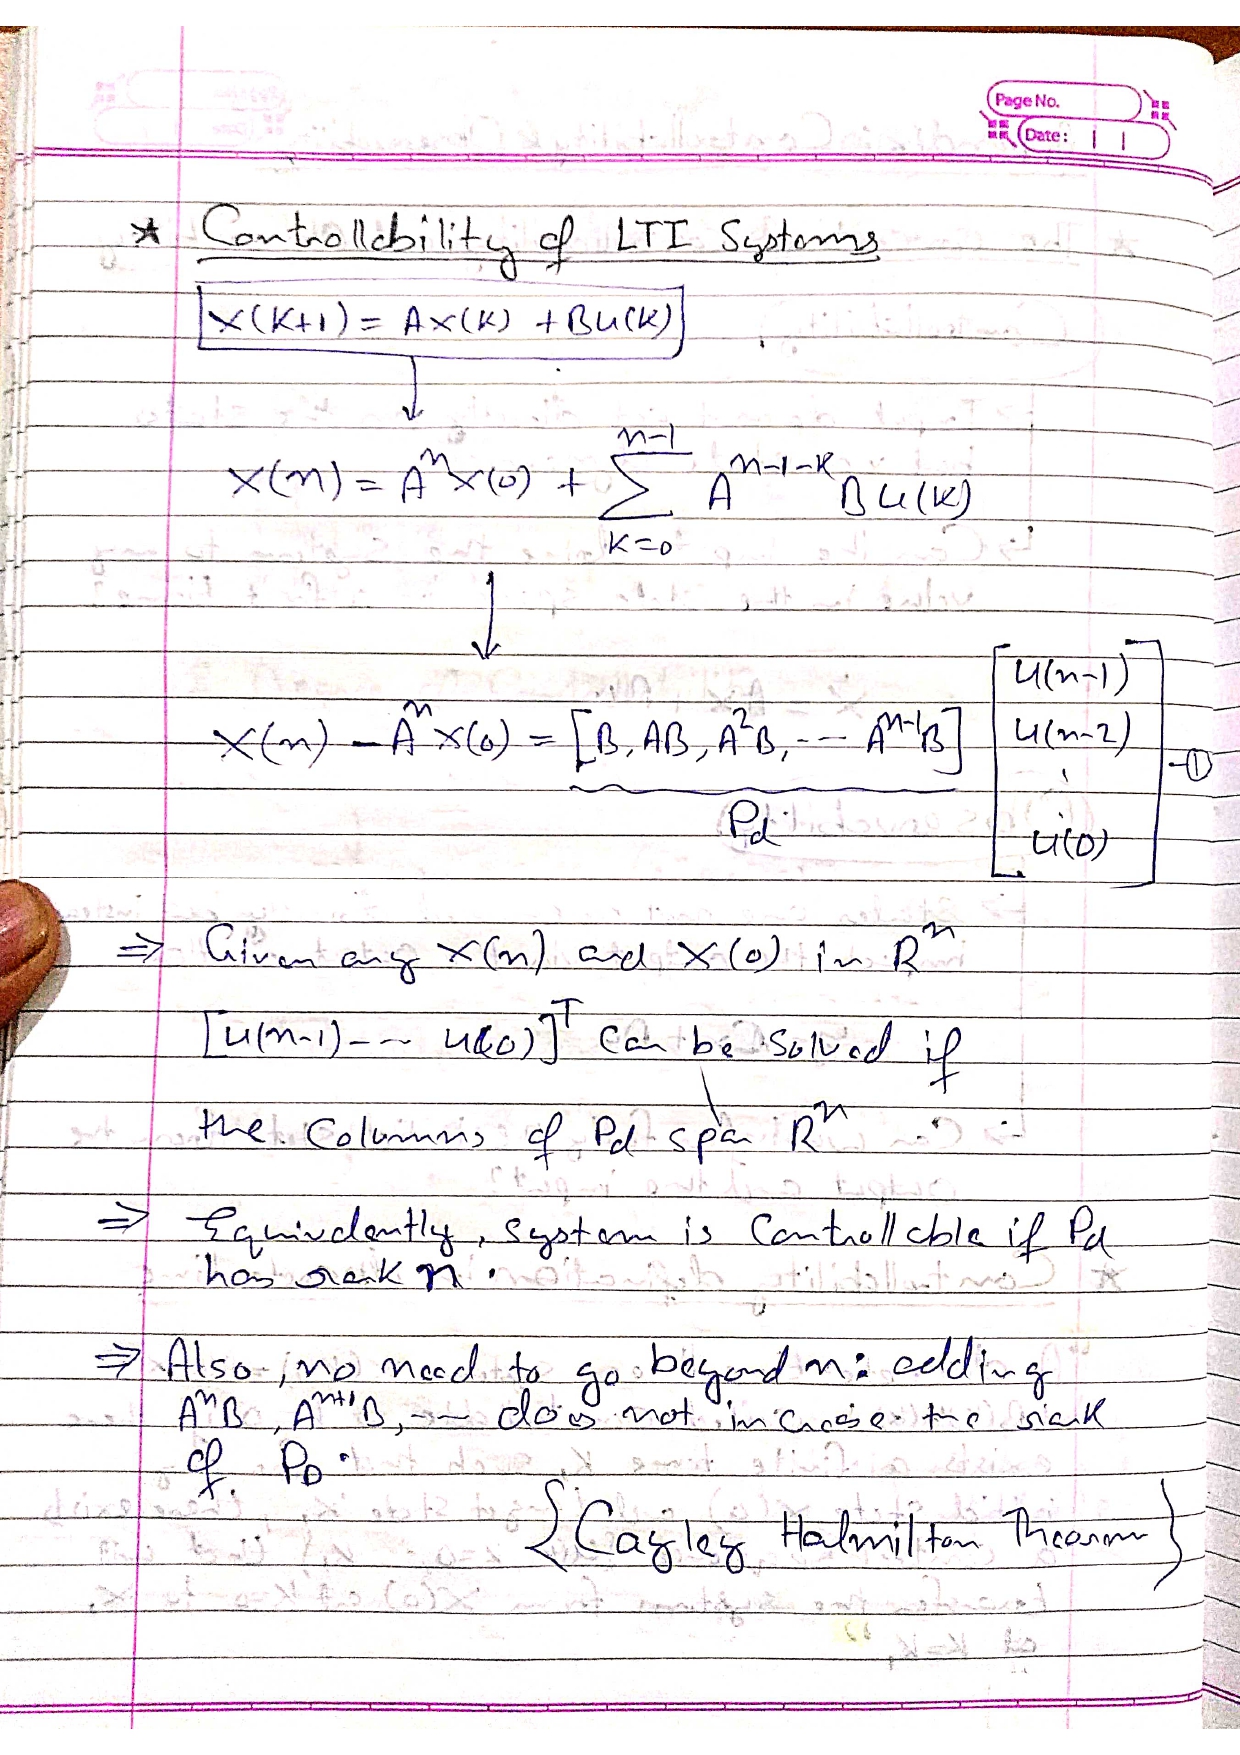 Page No.
Date: | |
* Controllability of LTI Systems
X(K+1) = AX(K) + BU(K)
X(n) = A^n X(0) + Σ_{K=0}^{n-1} A^{n-1-K} B U(K)
X(n) - A^n X(0) = [B, AB, A²B, --- A^{n-1}B] [U(n-1) U(n-2) ⋮ U(0)] -①
Pd
⇒ Given any X(n) and X(0) in R^n
[U(n-1) --- U(0)]^T Can be solved if
the Columns of Pd span R^n
⇒ Equivalently, system is Controllable if Pd
has rank n.
⇒ Also, no need to go beyond n: adding
A^n B, A^{n+1} B, --- does not increase the rank
of PD.
{Cayley Halmilton Theorem}